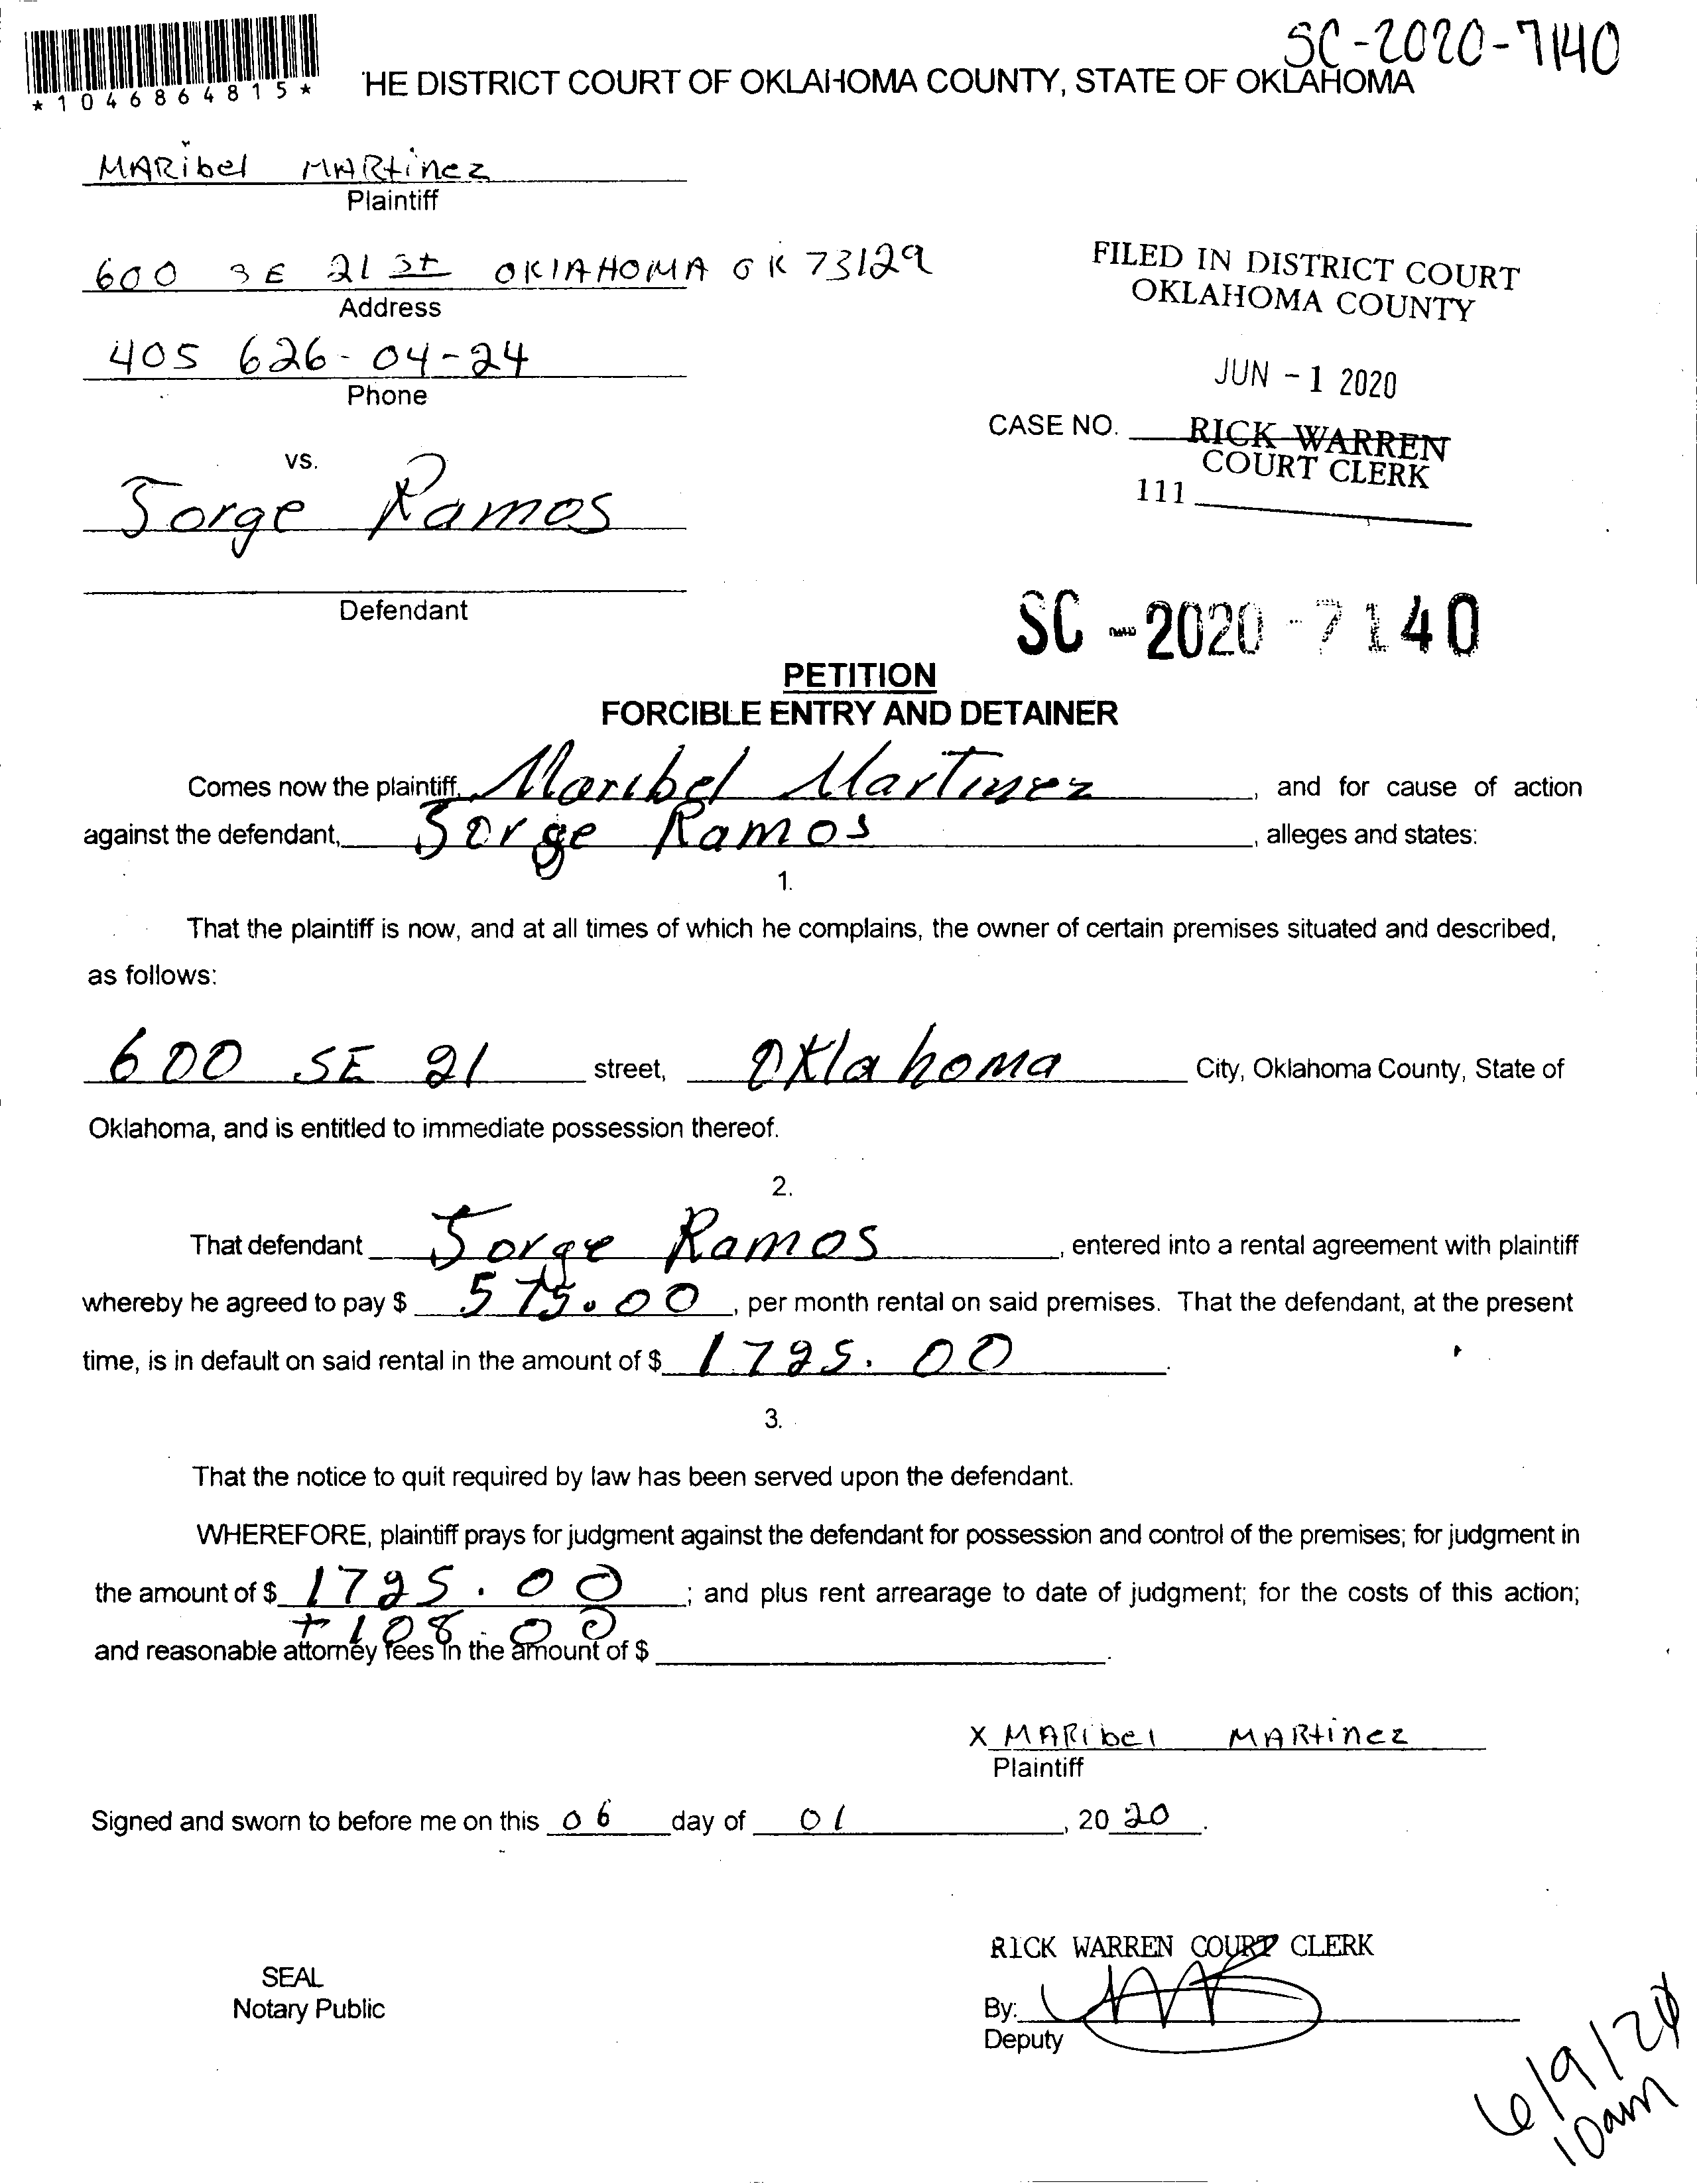 SC-2020-7140
*1046864815*
HE DISTRICT COURT OF OKLAHOMA COUNTY, STATE OF OKLAHOMA
MARibel MARtinez
Plaintiff
600 SE 21 St OKlAHOMA OK 73129
Address
FILED IN DISTRICT COURT
OKLAHOMA COUNTY
405 626-04-24
Phone
JUN -1 2020
CASE NO. RICK WARREN
COURT CLERK
111
vs.
Jorge Ramos
Defendant
SC -2020 -7140
PETITION
FORCIBLE ENTRY AND DETAINER
Comes now the plaintiff, Maribel Martinez, and for cause of action
against the defendant, Jorge Ramos, alleges and states:
1.
That the plaintiff is now, and at all times of which he complains, the owner of certain premises situated and described,
as follows:
600 SE 21 street, OKlahoma City, Oklahoma County, State of
Oklahoma, and is entitled to immediate possession thereof.
2.
That defendant Jorge Ramos, entered into a rental agreement with plaintiff
whereby he agreed to pay $ 575.00, per month rental on said premises. That the defendant, at the present
time, is in default on said rental in the amount of $ 1725.00.
3.
That the notice to quit required by law has been served upon the defendant.
WHEREFORE, plaintiff prays for judgment against the defendant for possession and control of the premises; for judgment in
the amount of $ 1725.00; and plus rent arrearage to date of judgment; for the costs of this action;
+108.00
and reasonable attorney fees in the amount of $ .
X MARibel MARtinez
Plaintiff
Signed and sworn to before me on this 06 day of 01, 20 20.
RICK WARREN COURT CLERK
SEAL
Notary Public
By:
Deputy
6/9/20
10am